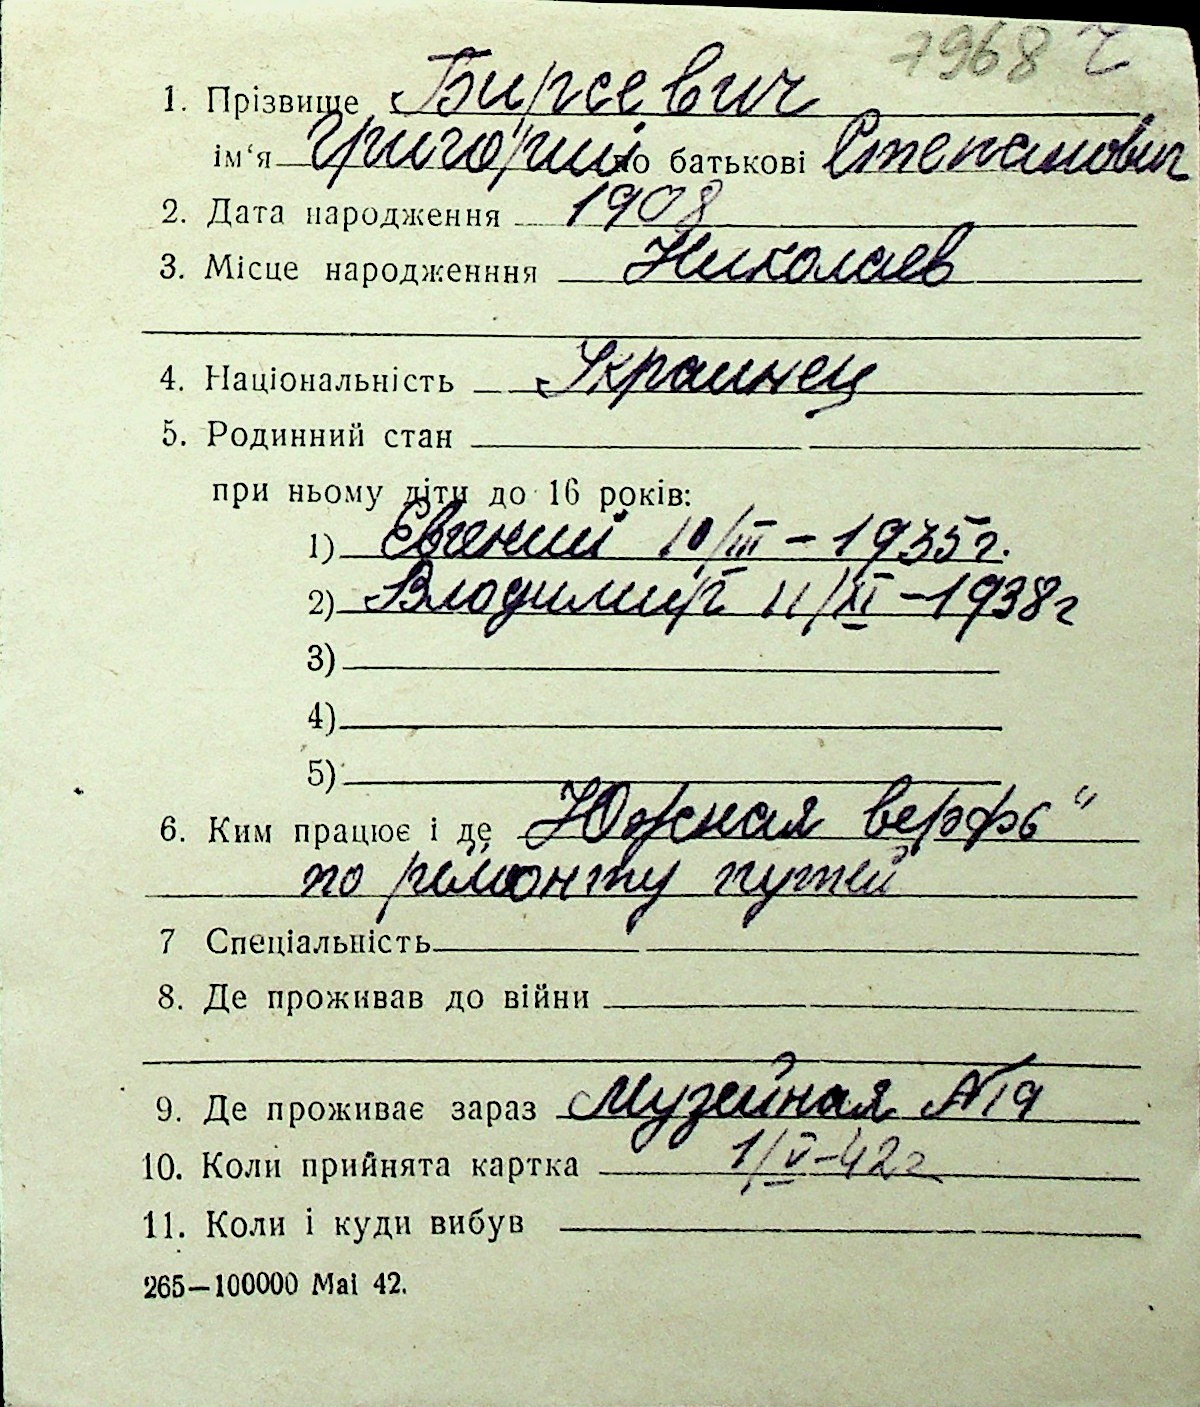 7968
1. Прізвище Бирсевич
ім'я Григорий по батькові Степанович
2. Дата народження 1908
3. Місце народженння Николаев
4. Національність Украинец
5. Родинний стан
при ньому діти до 16 років:
1) Евгений 10/III – 1935г.
2) Владимир 11/XI – 1938г
3)
4)
5)
6. Ким працює і де Южная верфь"
по ремонту путей
7 Спеціальність
8. Де проживав до війни
9. Де проживає зараз Музейная №19
10. Коли прийнята картка 1/V-42г
11. Коли і куди вибув
265—100000 Mai 42.